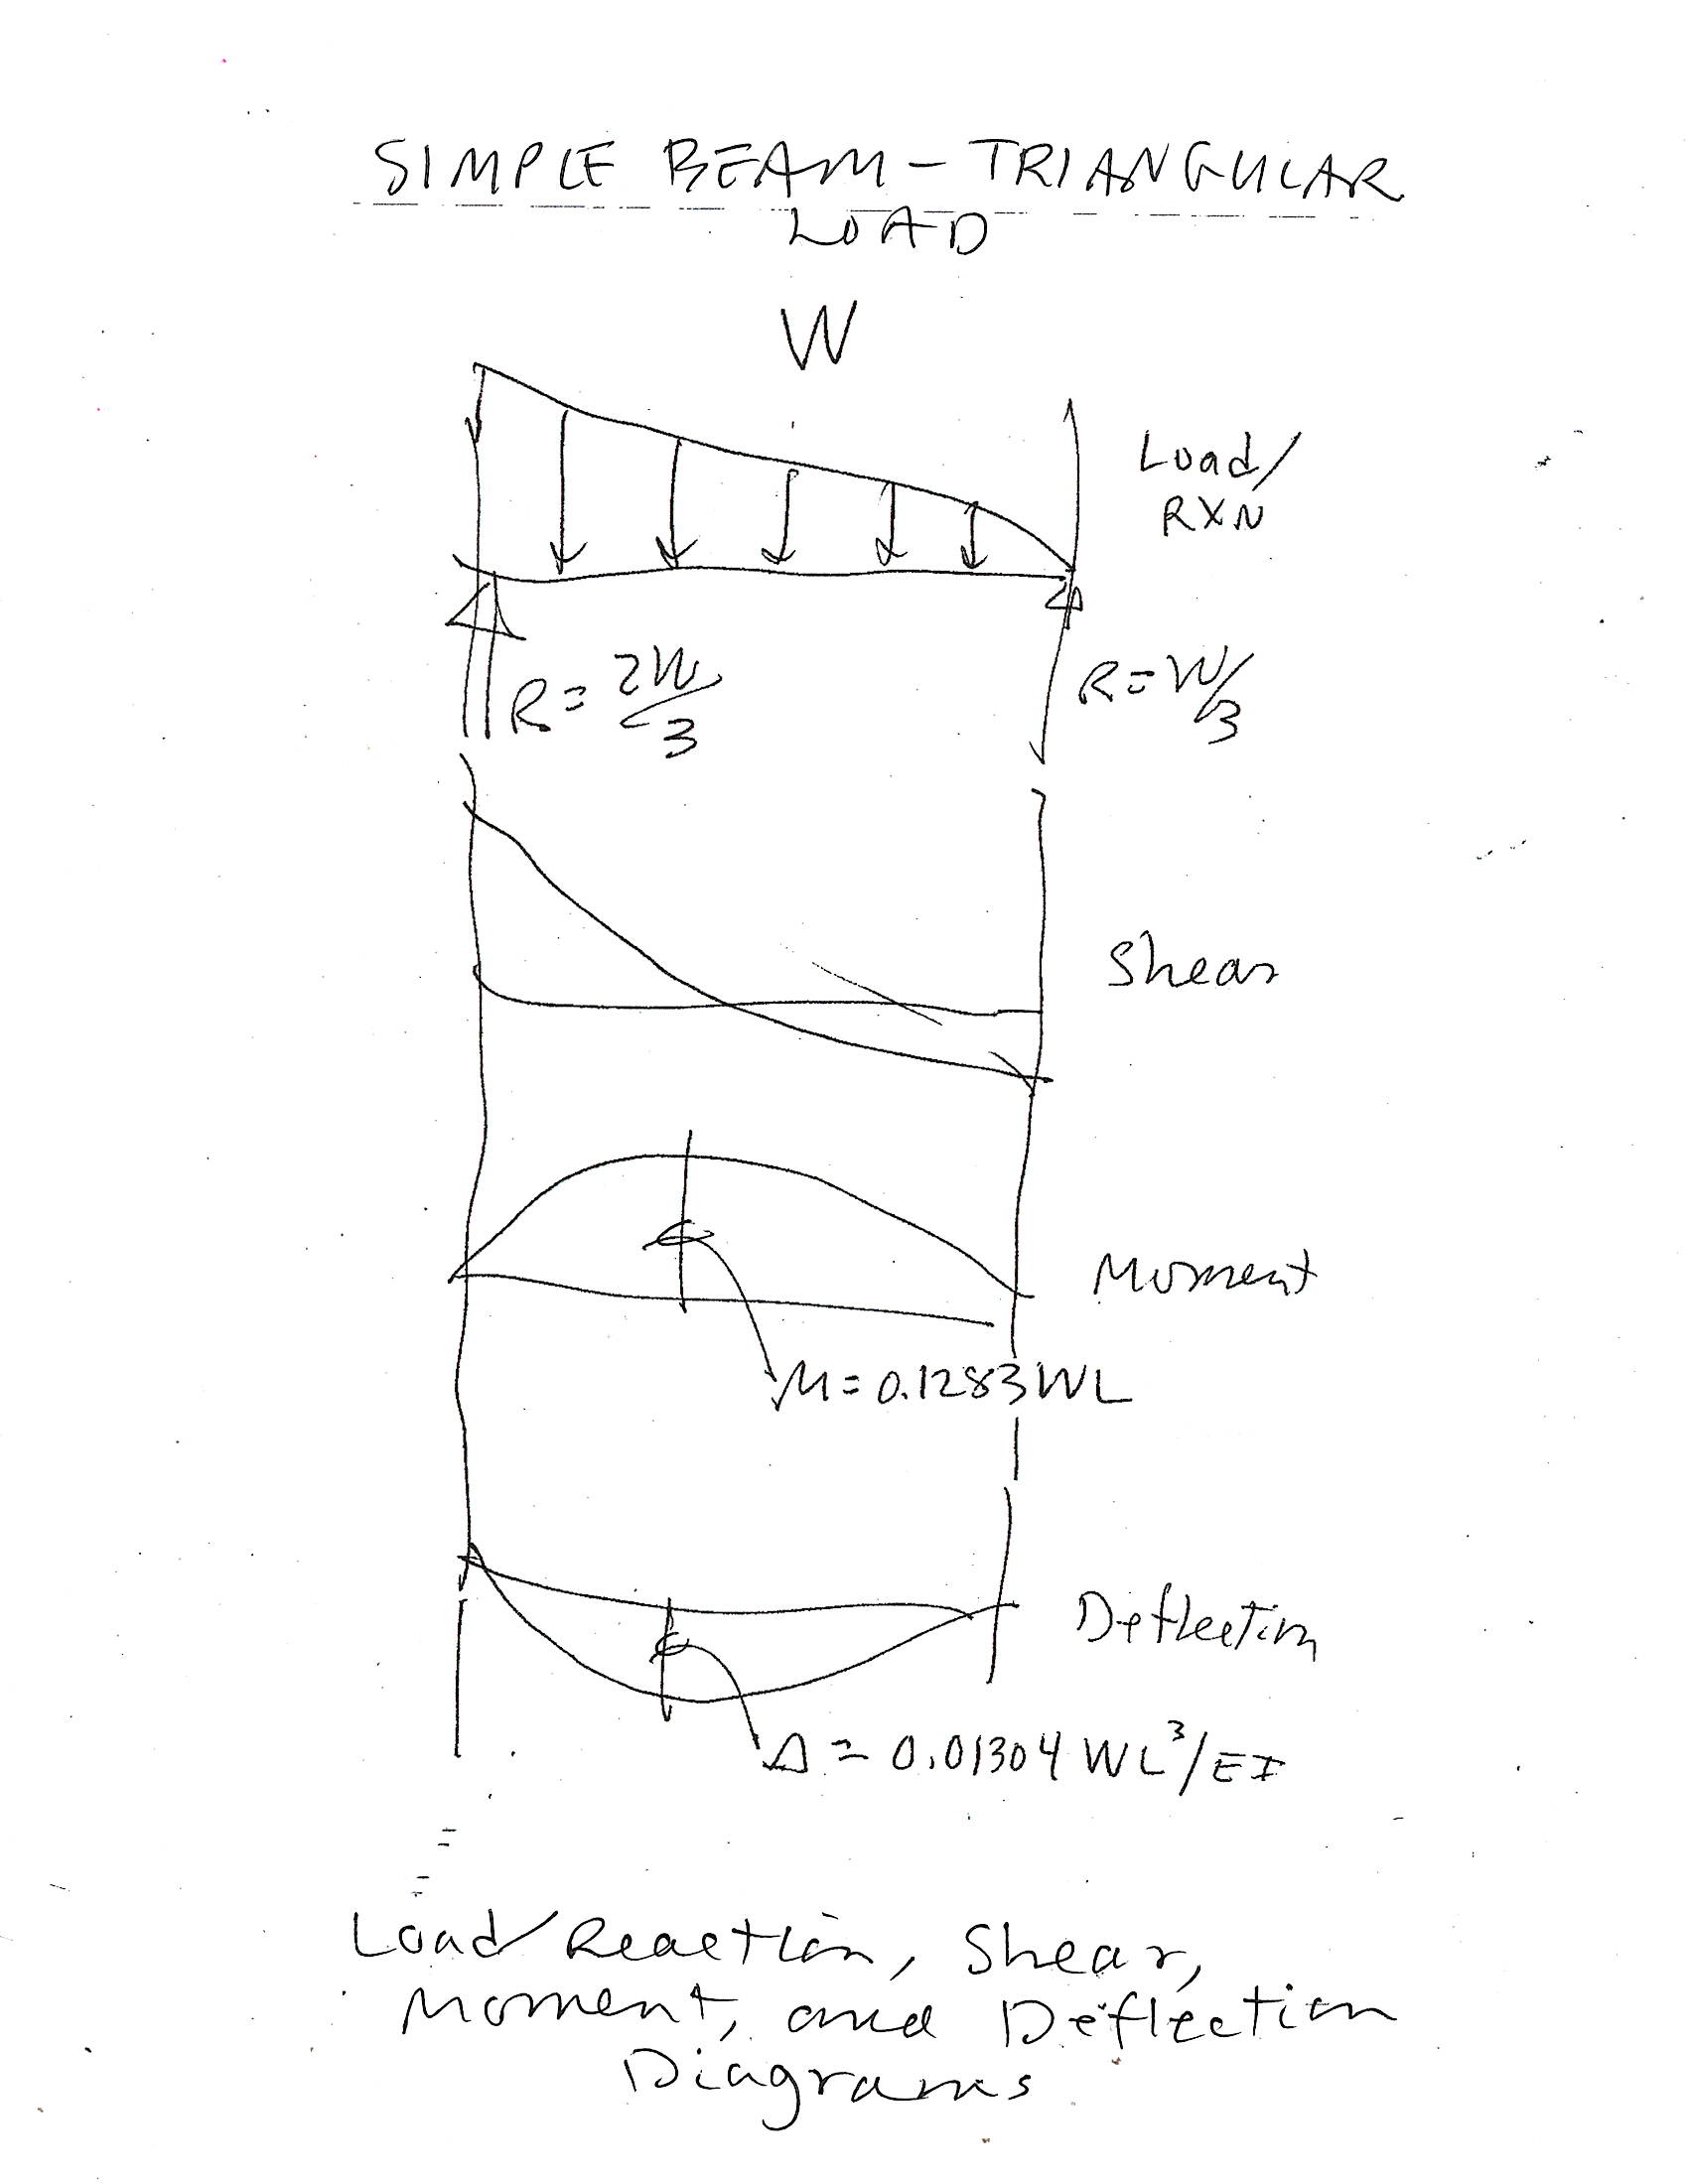 SIMPLE BEAM - TRIANGULAR
LOAD
W
Load/
RXN
R = 2W/3
R = W/3
Shear
Moment
M = 0.1283 WL
Deflection
Δ = 0.01304 WL³/EI
Load/Reaction, Shear,
Moment, and Deflection
Diagrams